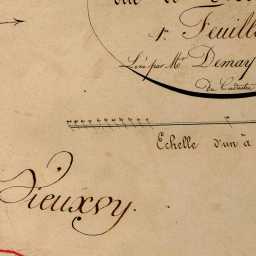 1re Feuille
Levée par Mr. Demay
du Cadastre
Echelle d'un à
Vieuxvy.